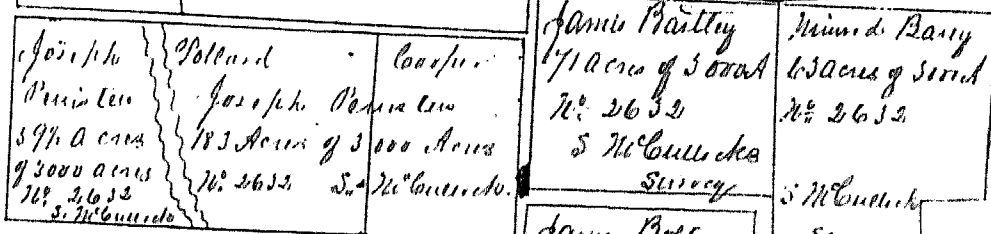 Joseph
Peniston
59½ Acres
of 3000 acres
No. 2632
S. McCullocks
Pollard
Cooper
Joseph Peniston
183 Acres of 3000 Acres
No. 2632 Sur McCullocks.
James Bartley
71 Acres of 3000 A
No. 2632
S McCullocks
Survey
Barry
63 Acres of 3000 A
No. 2632
S McCullock
James